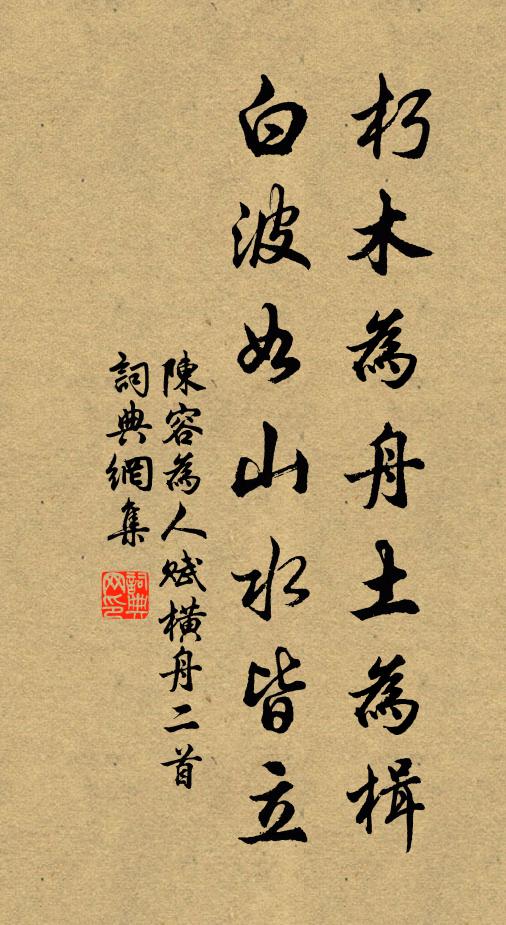 朽木為舟土為楫
白波如山水皆立
陳容為人賦橫舟二首
詞典網集
詞典网印